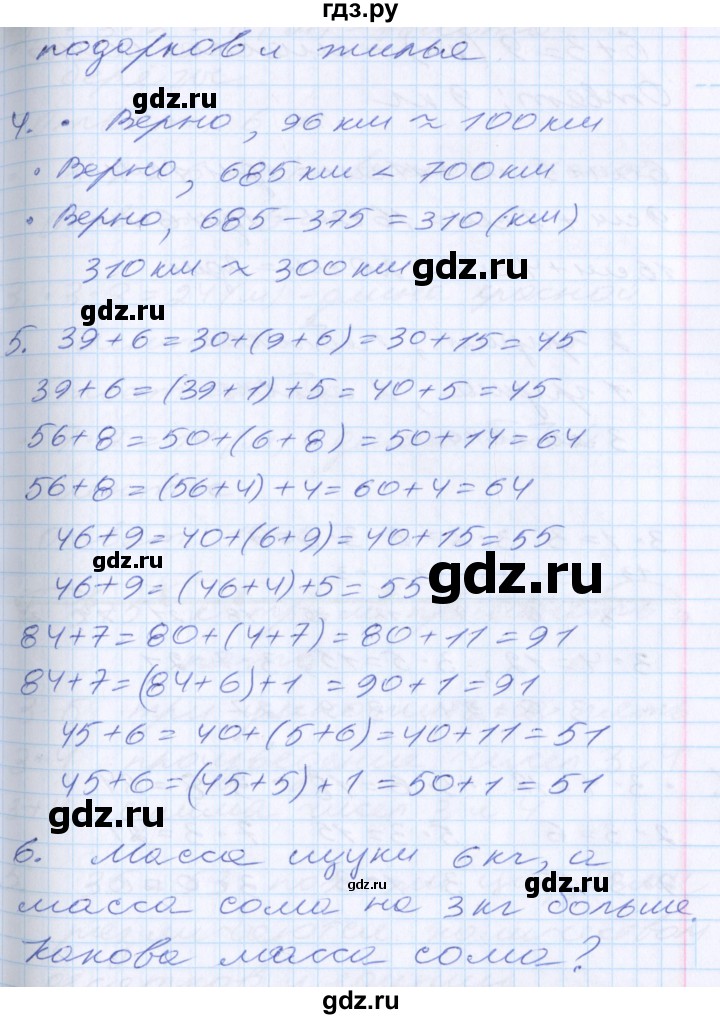 гдз.ру
подарков и жилье
gdz.ru
4. • Верно, 96 км ≈ 100 км
• Верно, 685 км < 700 км
• Верно, 685 - 375 = 310 (км)
310 км ≈ 300 км gdz.ru
gdz.ru
5. 39 + 6 = 30 + (9 + 6) = 30 + 15 = 45
39 + 6 = (39 + 1) + 5 = 40 + 5 = 45
56 + 8 = 50 + (6 + 8) = 50 + 14 = 64
56 + 8 = (56 + 4) + 4 = 60 + 4 = 64
46 + 9 = 40 + (6 + 9) = 40 + 15 = 55
gdz.ru
46 + 9 = (46 + 4) + 5 = 55 gdz.ru
84 + 7 = 80 + (4 + 7) = 80 + 11 = 91
84 + 7 = (84 + 6) + 1 = 90 + 1 = 91
45 + 6 = 40 + (5 + 6) = 40 + 11 = 51
45 + 6 = (45 + 5) + 1 = 50 + 1 = 51
gdz.ru
6. Масса щуки 6 кг, а
gdz.ru gdz.ru
масса сома на 3 кг больше.
Какова масса сома?
gdz.ru